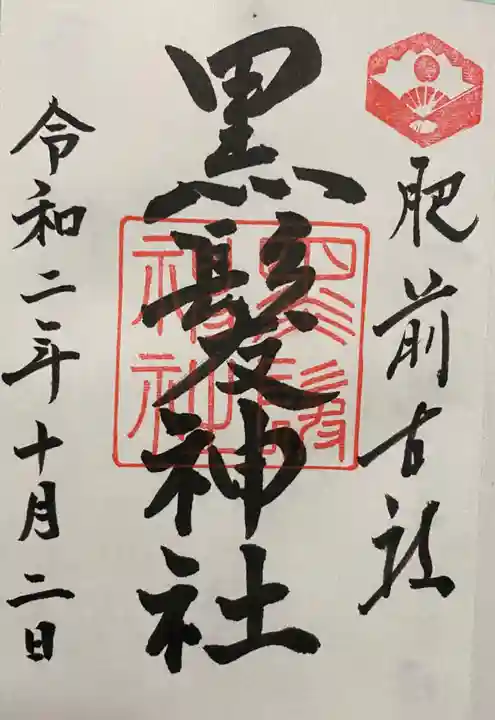 肥前古社
黒髪神社
令和二年十月二日